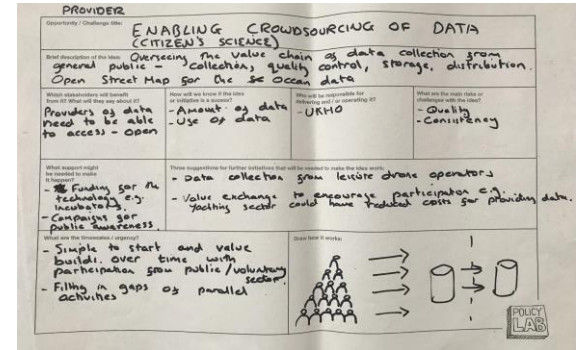 PROVIDER
Opportunity / Challenge title:
ENABLING CROWDSOURCING OF DATA
(CITIZEN'S SCIENCE)
Brief description of the idea: Overseeing the value chain of data collection from
general public - collection, quality control, storage, distribution.
Open Street Map for the ocean data
Which stakeholders will benefit
from it? What will they say about it?
Providers of data
need to be able
to access - open
How will we know if the idea
or initiative is a success?
- Amount of data
- Use of data
Who will be responsible for
delivering and / or operating it?
- UKHO
What are the main risks or
challenges with the idea?
- Quality
- Consistency
What support might
be needed to make
it happen?
- Funding for the
technology e.g.
incubators.
- Campaigns for
public awareness.
Three suggestions for further initiatives that will be needed to make the idea work:
- Data collection from leisure drone operators
- Value exchange to encourage participation e.g.
yachting sector could have reduced costs for providing data.
What are the timescales / urgency?
- Simple to start and value
builds over time with
participation from public / voluntary
sector.
- Filling in gaps of parallel
activities
Draw how it works:
POLICY
LAB